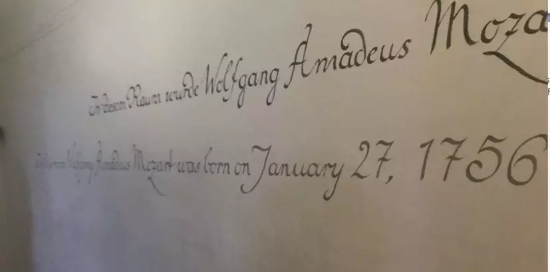 In diesem Raum wurde Wolfgang Amadeus Moza
In this room Wolfgang Amadeus Mozart was born on January 27, 1756